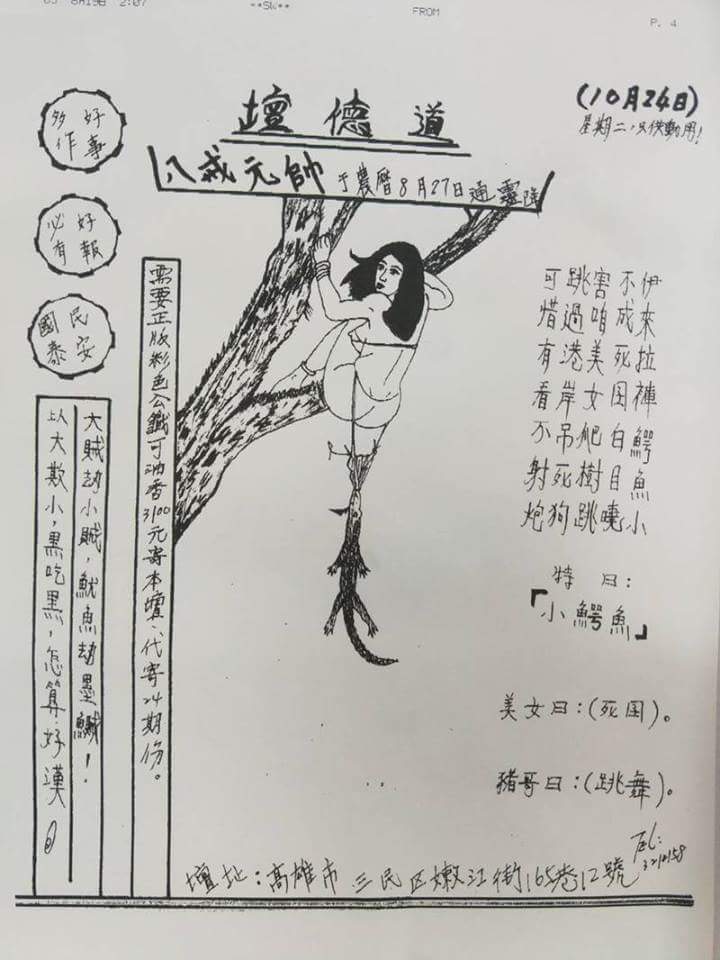 P. 4
FROM
2:07
(10月24日)
道德壇
八戒元帥 于農曆8月27日通靈降
好事
多作
好報
必有
民安
國泰
伊來拉褲鱷魚小
不成死国白目曉
害咱美女爬樹跳
跳過港岸吊死狗
可惜有看不射炮
特曰:
「小鱷魚」
美女曰:(死国)。
豬哥曰:(跳舞)。
需要正版彩色公鐵可油香3100元寄本壇、代寄24期份。
大賊劫小賊,魷魚劫墨鰂!
以大欺小,黑吃黑,怎算好漢
壇址:高雄市三民区嫩江街165巷12號
TEL: